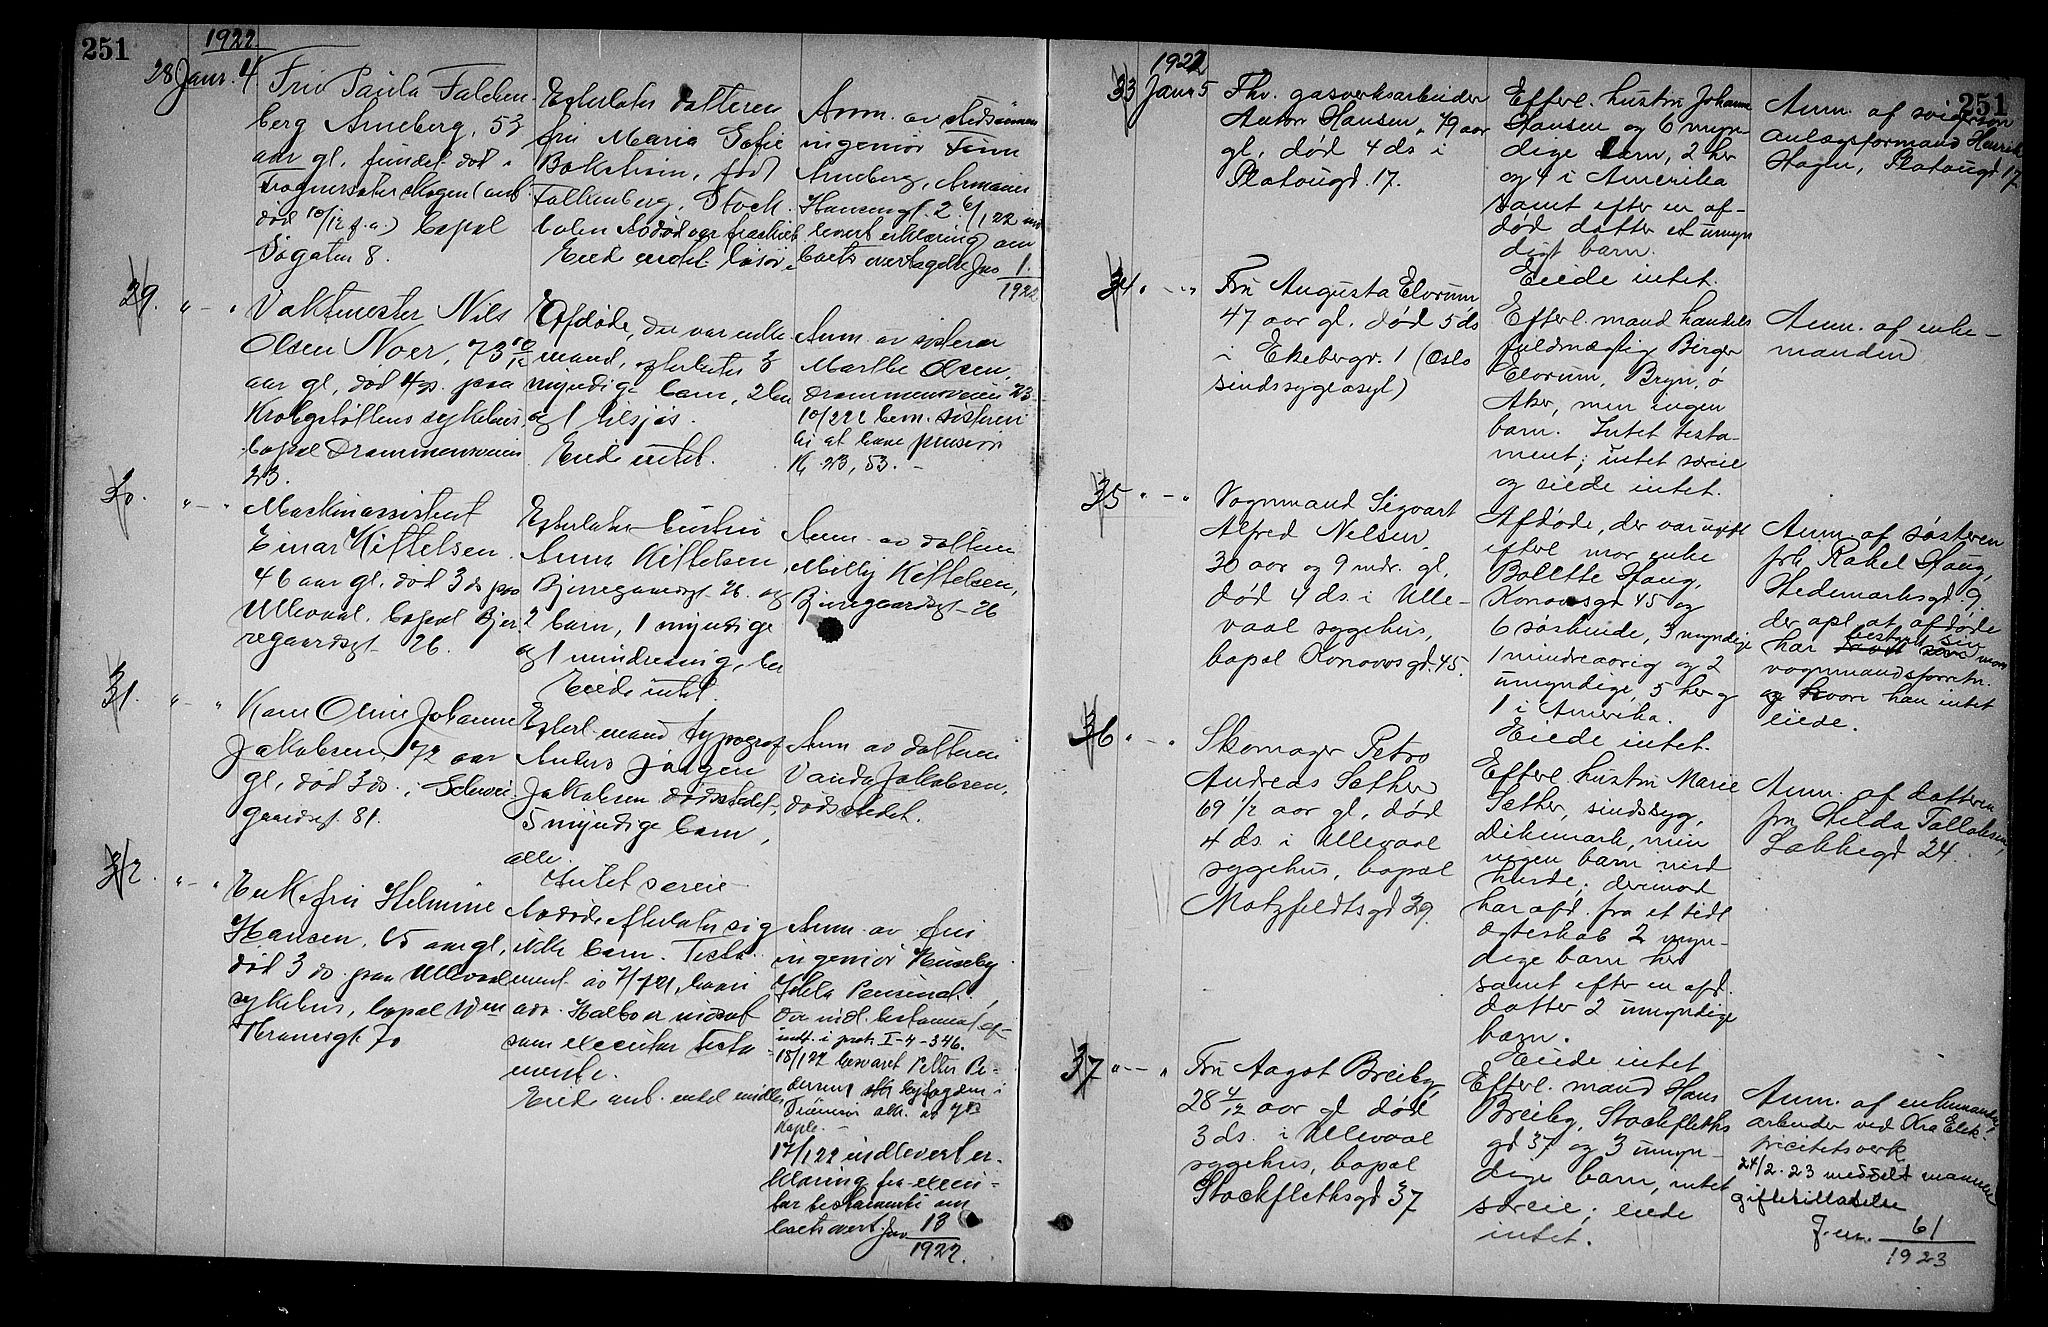 251
1922
28 Janr. 4.
Fru Paula Falcken-
berg Arneberg, 53
aar gl. fundet død i
Frognersæterskogen (anb.
død 10/12 f.a.) bopæl
gaten 8.
Efterlater datteren
fru Maria Sofie
født
Falkenberg, Stock-
holm. Avdøde var fraskilt
Eiede endel løsøre
Anm. av
ingeniør Finn
Arneberg,
Hansensgt. 2. 6/1 22 ind-
levert erklæring om
boets overtagelse Jno 1
1922
29. " — "
Vaktmester Nils
Olsen Noer, 73 10/12
aar gl., død 4 ds. paa
Krohgstøttens sykehus,
bopæl Drammensveien
23.
Afdøde, der var enke-
mand, efterlater 3
myndige barn, 2 her
og 1 tilsjøs.
Eiede intet.
Anm. av søsteren
Marthe Olsen,
Drammensveien 23
10/2 22 bem. søsteren
til at hæve pension
K. 23,53. —
30. " — "
Maskinassistent
Einar Kittelsen
46 aar gl. død 3 ds paa
Ullevaal, bopæl Bjer-
regaardsgt 26.
Efterlater hustru
Anna Kittelsen,
Bjerregaardsgt. 26. og
2 barn, 1 myndige
og 1 mindreaarig, her
Eiede intet.
Anm. av datteren
Milly Kittelsen,
Bjerregaardsgt 26
31. " — "
Karen Oline Johanne
Jakobsen, 72 aar
gl., død 3 ds. i Schwei-
gaardsgt. 81.
Efterl. mand typograf
Anders Jørgen
Jakobsen dødsstedet,
5 myndige barn,
alle.
Intet særeie
Anm. av datteren
Vanda Jakobsen,
dødsstedet.
32. " — "
Enkefru Helmine
Hansen, 65 aar gl.,
død 3 ds. paa Ullevaal
sykehus, bopæl
Thranesgt. 70
Avdøde efterlater sig
ikke barn. Testa-
ment av hvori
adv. er indsat
som executor testa-
menti.
Eiede anb. endel midler
Anm. av fru
ingeniør Huseby
der indl. testament
indf. i prot. I-4-346.
18/1 22 besvaret Petter Pe-
dersens
17/1 22 indlevert er-
klæring fra execu-
tor testamenti om
boets overt. Jno 13
1922.
1922
251
33 Janr 5
Fhv. gasverksarbeider
Anton Hansen, 79 aar
gl., død 4 ds i
Platougd. 17.
Efterl. hustru Johanne
Hansen og 6 myn-
dige barn, 2 her
og 4 i Amerika
samt efter en af-
død datter et umyn
digt barn.
Eiede intet.
Anm. af svigersøn
anlægsformand Henrik
Hagen, Platougd. 17
34 " — "
Fru Augusta Elorum,
47 aar gl. død 5 ds
i Ekebergv. 1 (Oslo
sindssygeasyl)
Efterl. mand handels
fuldmægtig Birger
Elorum, Bryn, Ø
Aker, men ingen
barn. Intet testa-
ment; intet særeie
og eiede intet.
Anm. af enke-
manden
35 " — "
Vognmand Sigvart
Alfred Nelsen
30 aar og 9 mdr. gl.
død 4 ds. i Ulle-
vaal sygehus,
bopæl Konowsgd. 45.
Afdøde, der var ugift
efterl mor enke
Bolette Haug,
Konowsgd 45 og
6 søskende, 3 myndige
1 mindreaarig og 2
umyndige, 5 her og
1 i Amerika.
Eiede intet.
Anm. af søsteren
frk. Rakel Haug,
Hedemarksgd 9.
der opl. at afdøde
har bestyrt sin mors
vognmandsforretn.
og hvori han intet
eiede.
36 " — "
Skomager Petro
Andreas Sether
69 1/2 aar gl., død
4 ds. i Ullevaal
sygehus, bopæl
Motzfeldtsgd 29.
Efterl. hustru Marie
Sether, sindssyg,
Dikemark, men
ingen barn med
hende; derimod
har afd. fra et tidl
ægteskab 2 myn-
dige barn her
samt efter en afd.
datter 2 umyndige
barn.
Eiede intet
Anm. af datteren
fru Hilda Tollaksen,
Lakkegd 24.
37 " — "
Fru Aagot Breiby
28 4/12 aar gl død
3 ds. i Ullevaal
sygehus, bopæl
Stockflethsgd 37
Efterl. mand Hans
Breiby, Stockfleths
gd 37 og 3 umyn-
dige barn, intet
særeie; eiede
intet.
Anm. af enkemanden,
arbeider ved Kra Elek-
tricitetsverk
24/2-23 meddelt manden
giftetilladelse
J.nr. 61
1923